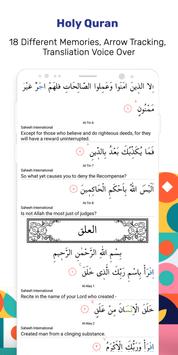 Holy Quran
18 Different Memories, Arrow Tracking,
Transliation Voice Over
إِلَّا الَّذِينَ آمَنُوا وَعَمِلُوا الصَّالِحَاتِ فَلَهُمْ أَجْرٌ غَيْرُ
مَمْنُونٍ
At-Tin 6
Saheeh International
Except for those who believe and do righteous deeds, for they
will have a reward uninterrupted.
فَمَا يُكَذِّبُكَ بَعْدُ بِالدِّينِ
At-Tin 7
Saheeh International
So what yet causes you to deny the Recompense?
أَلَيْسَ اللَّهُ بِأَحْكَمِ الْحَاكِمِينَ
At-Tin 8
Saheeh International
Is not Allah the most just of judges?
العلق
بِسْمِ اللَّهِ الرَّحْمَٰنِ الرَّحِيمِ
اقْرَأْ بِاسْمِ رَبِّكَ الَّذِي خَلَقَ
Al-Alaq 1
Saheeh International
Recite in the name of your Lord who created -
خَلَقَ الْإِنسَانَ مِنْ عَلَقٍ
Al-Alaq 2
Saheeh International
Created man from a clinging substance.
اقْرَأْ وَرَبُّكَ الْأَكْرَمُ